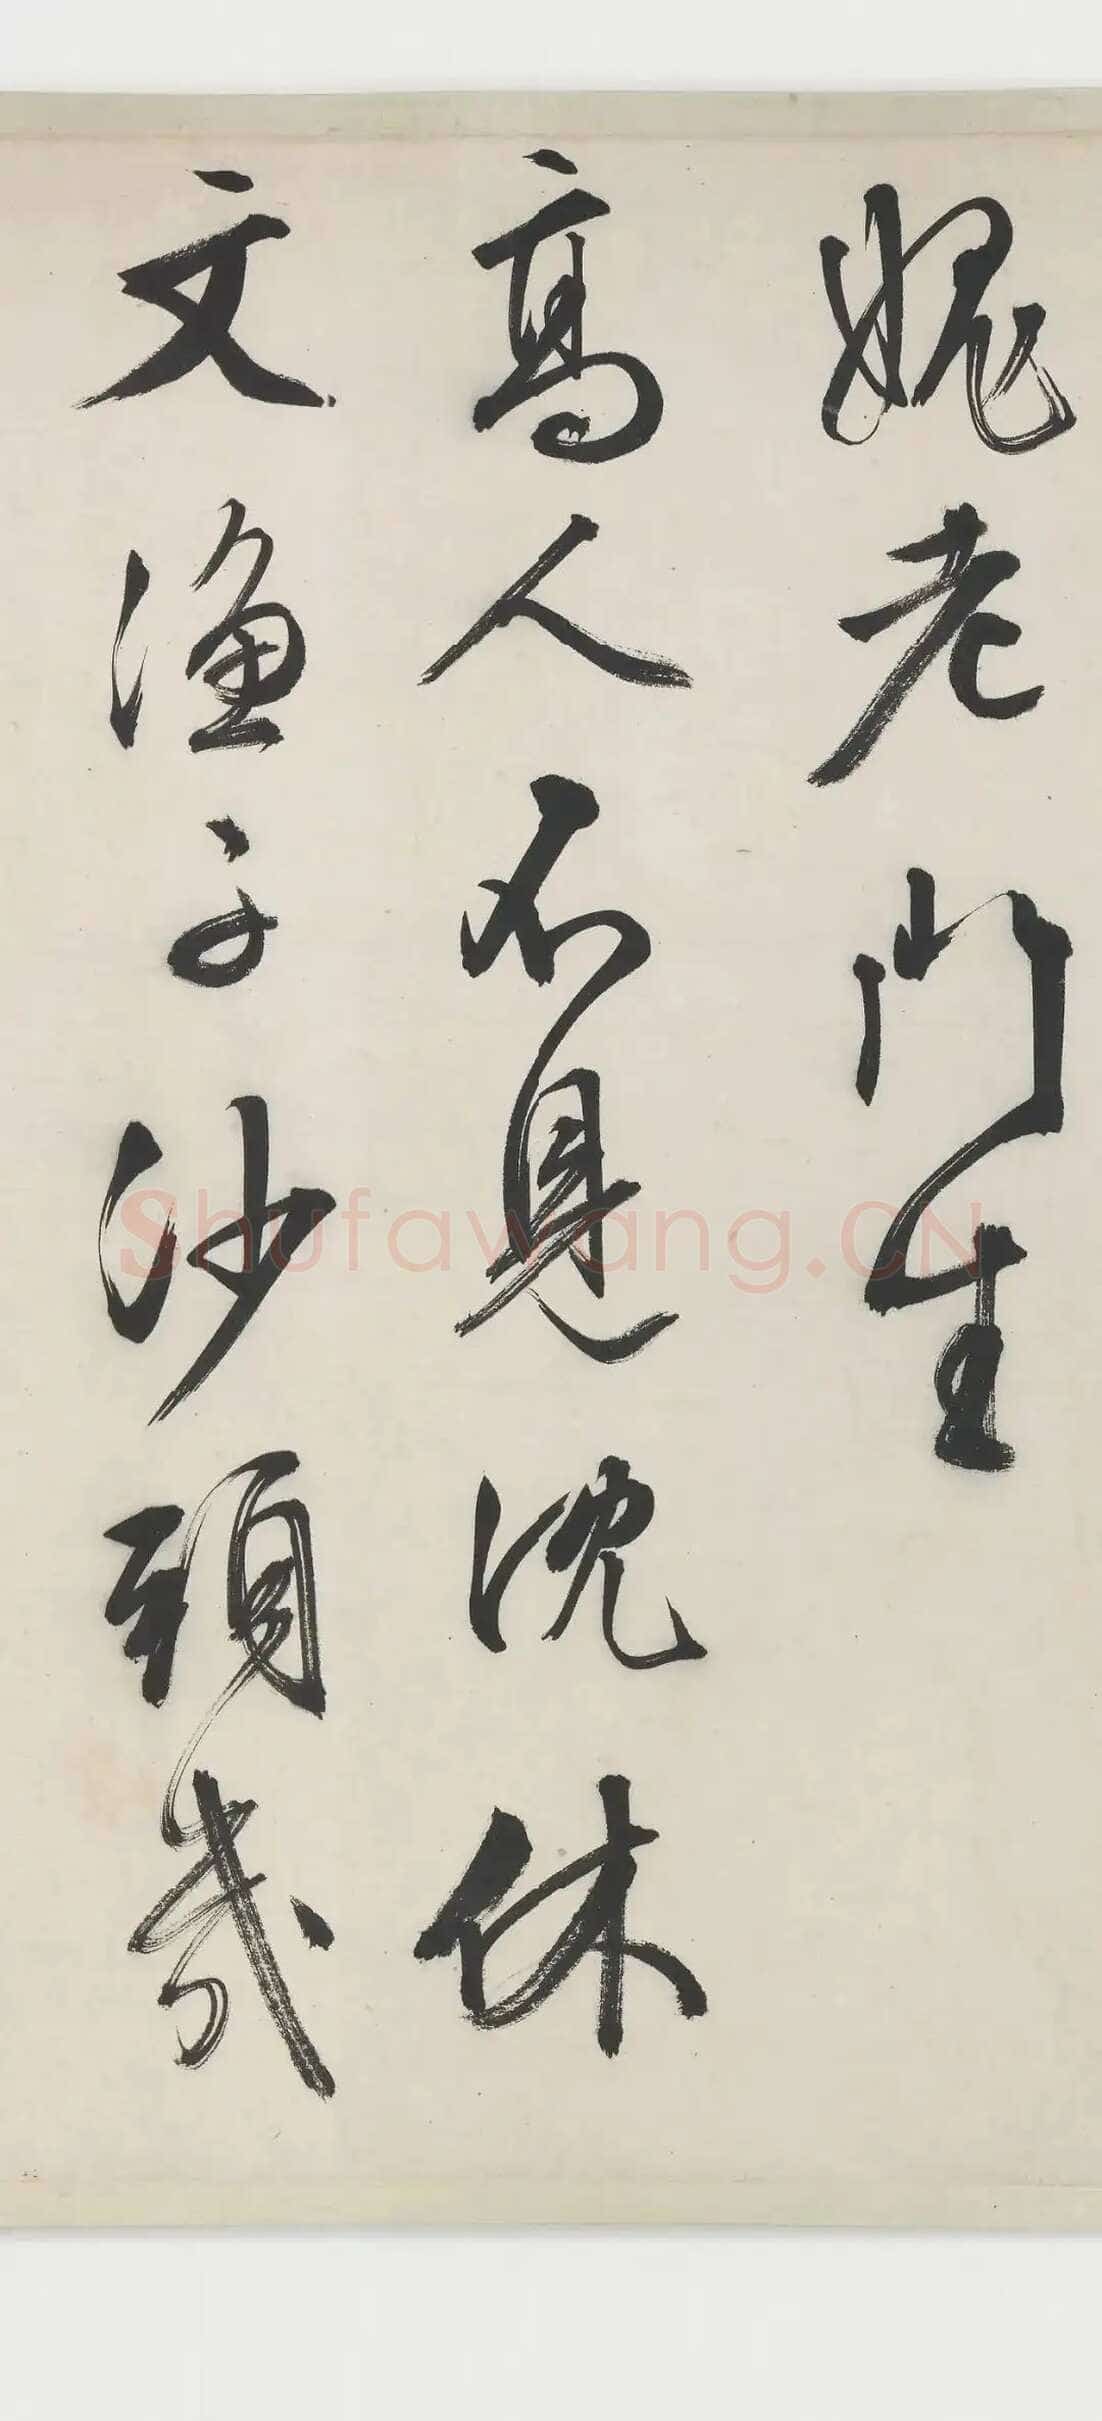 媿老門生
高人不見沈休
文漁子沙頭幾
Shufawang.CN